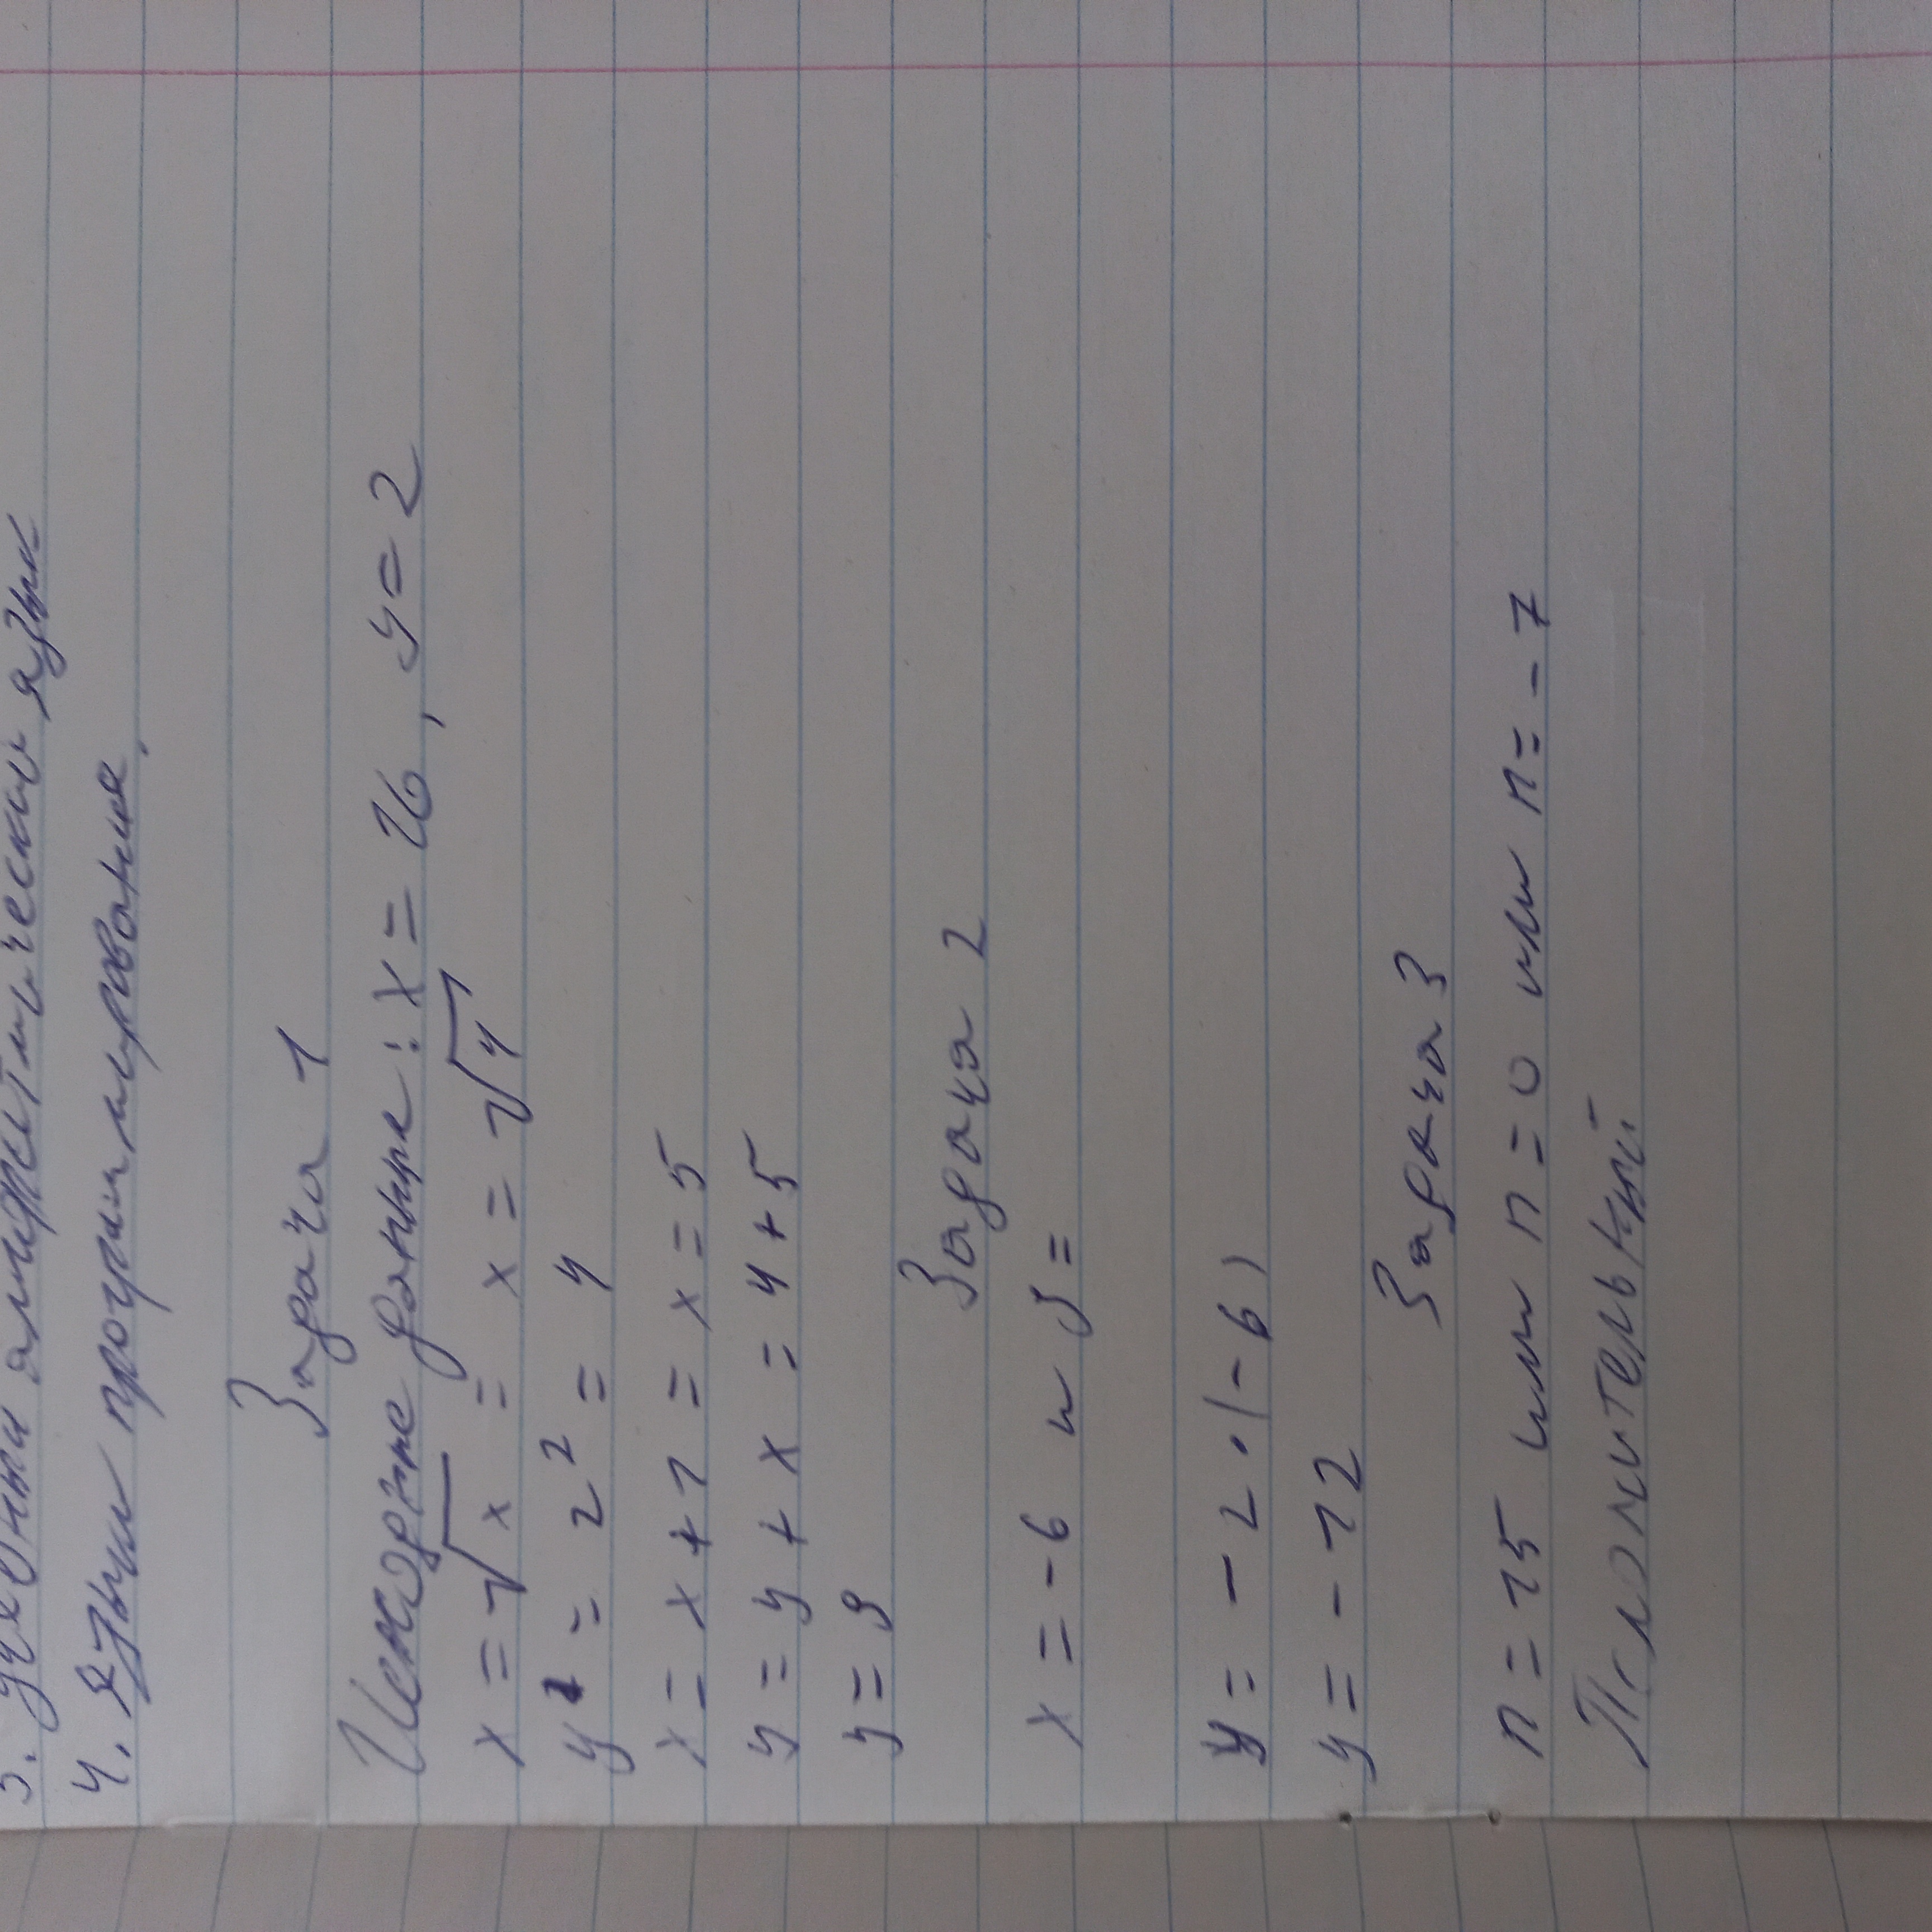 3. Учебный алгоритмический язык
4. Языки программирования.
Задача 1
Исходные данные: x = 16, y = 2
x = √x = x = √4
y² = 2² = 4
x = x + 1 = x = 5
y = y + x = 4 + 5
y = 9
Задача 2
x = -6 и y =
y = - 2 · (-6)
y = - 12
Задача 3
n = 15 или n = 0 или n = - 7
Положительный